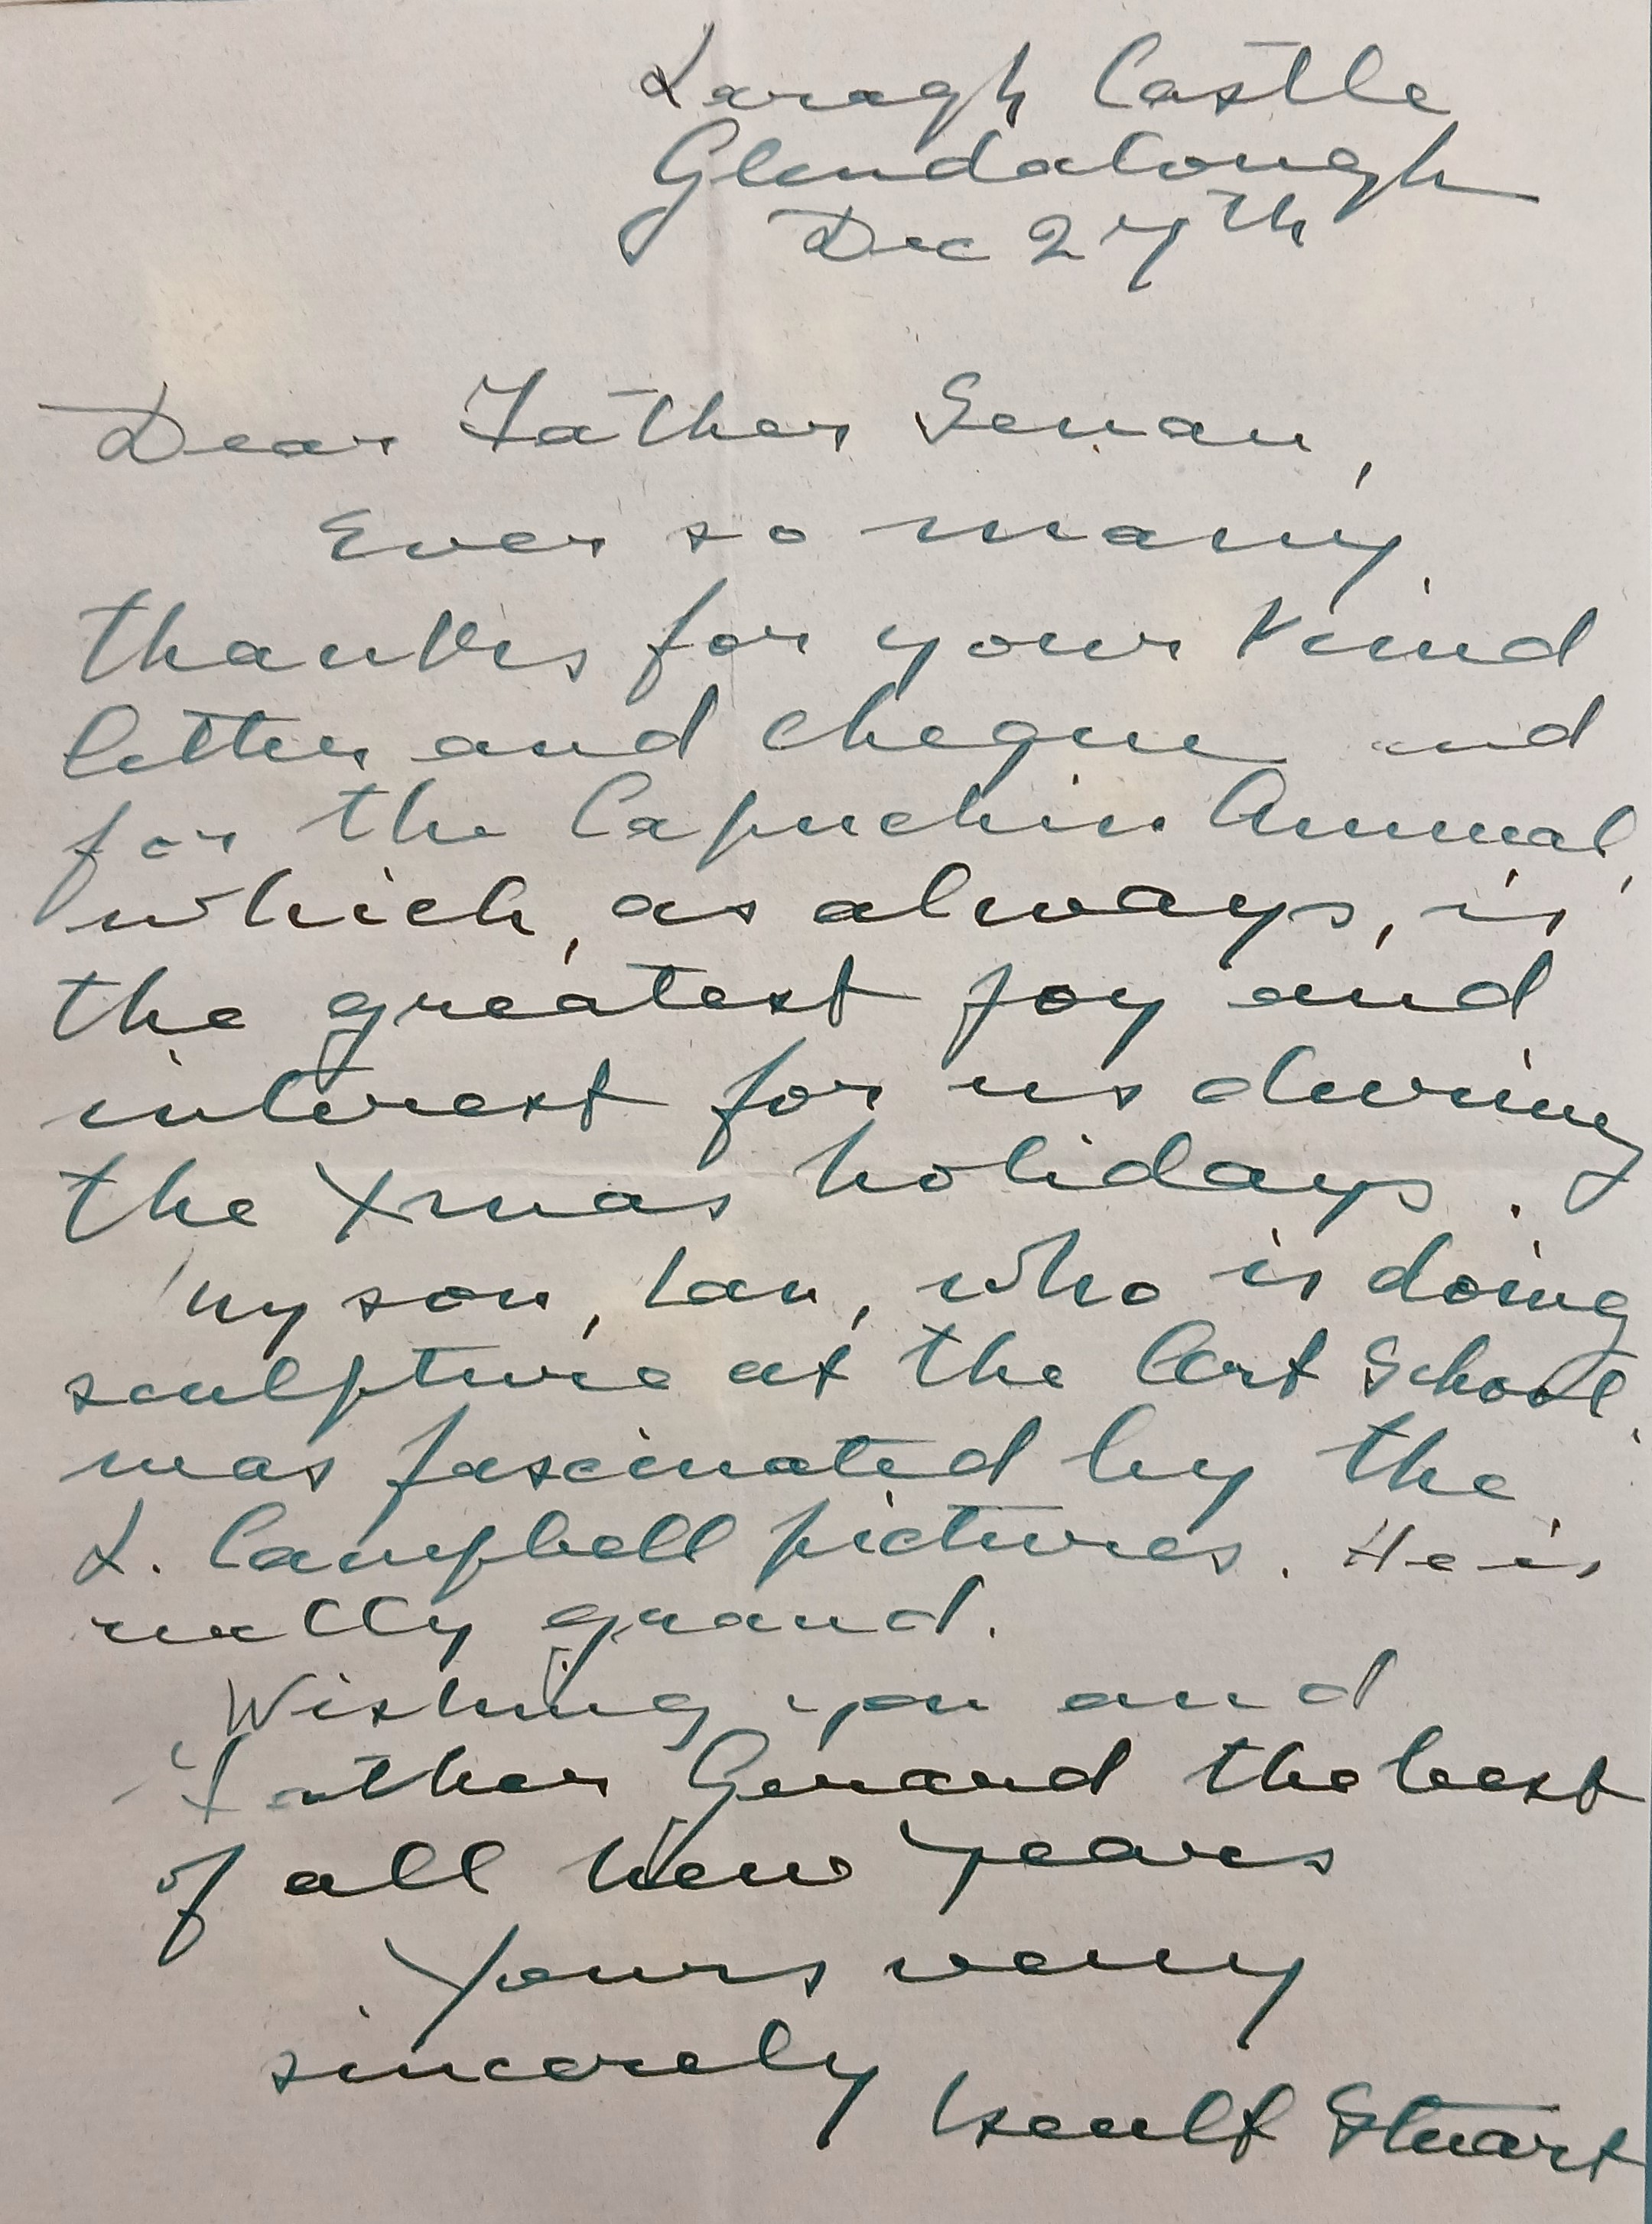 Laragh Castle
Glendalough
Dec 27th
Dear Father Senan,
Ever so many
thanks for your kind
letter and cheque and
for the Capuchin Annual,
which, as always, is
the greatest joy and
interest for us during
the Xmas holidays.
My son, Ian, who is doing
sculpture at the Art School,
was fascinated by the
L. Campbell pictures. He is
really grand.
Wishing you and
Father Gerard the best
of all New Years
Yours very
sincerely
Iseult Stuart